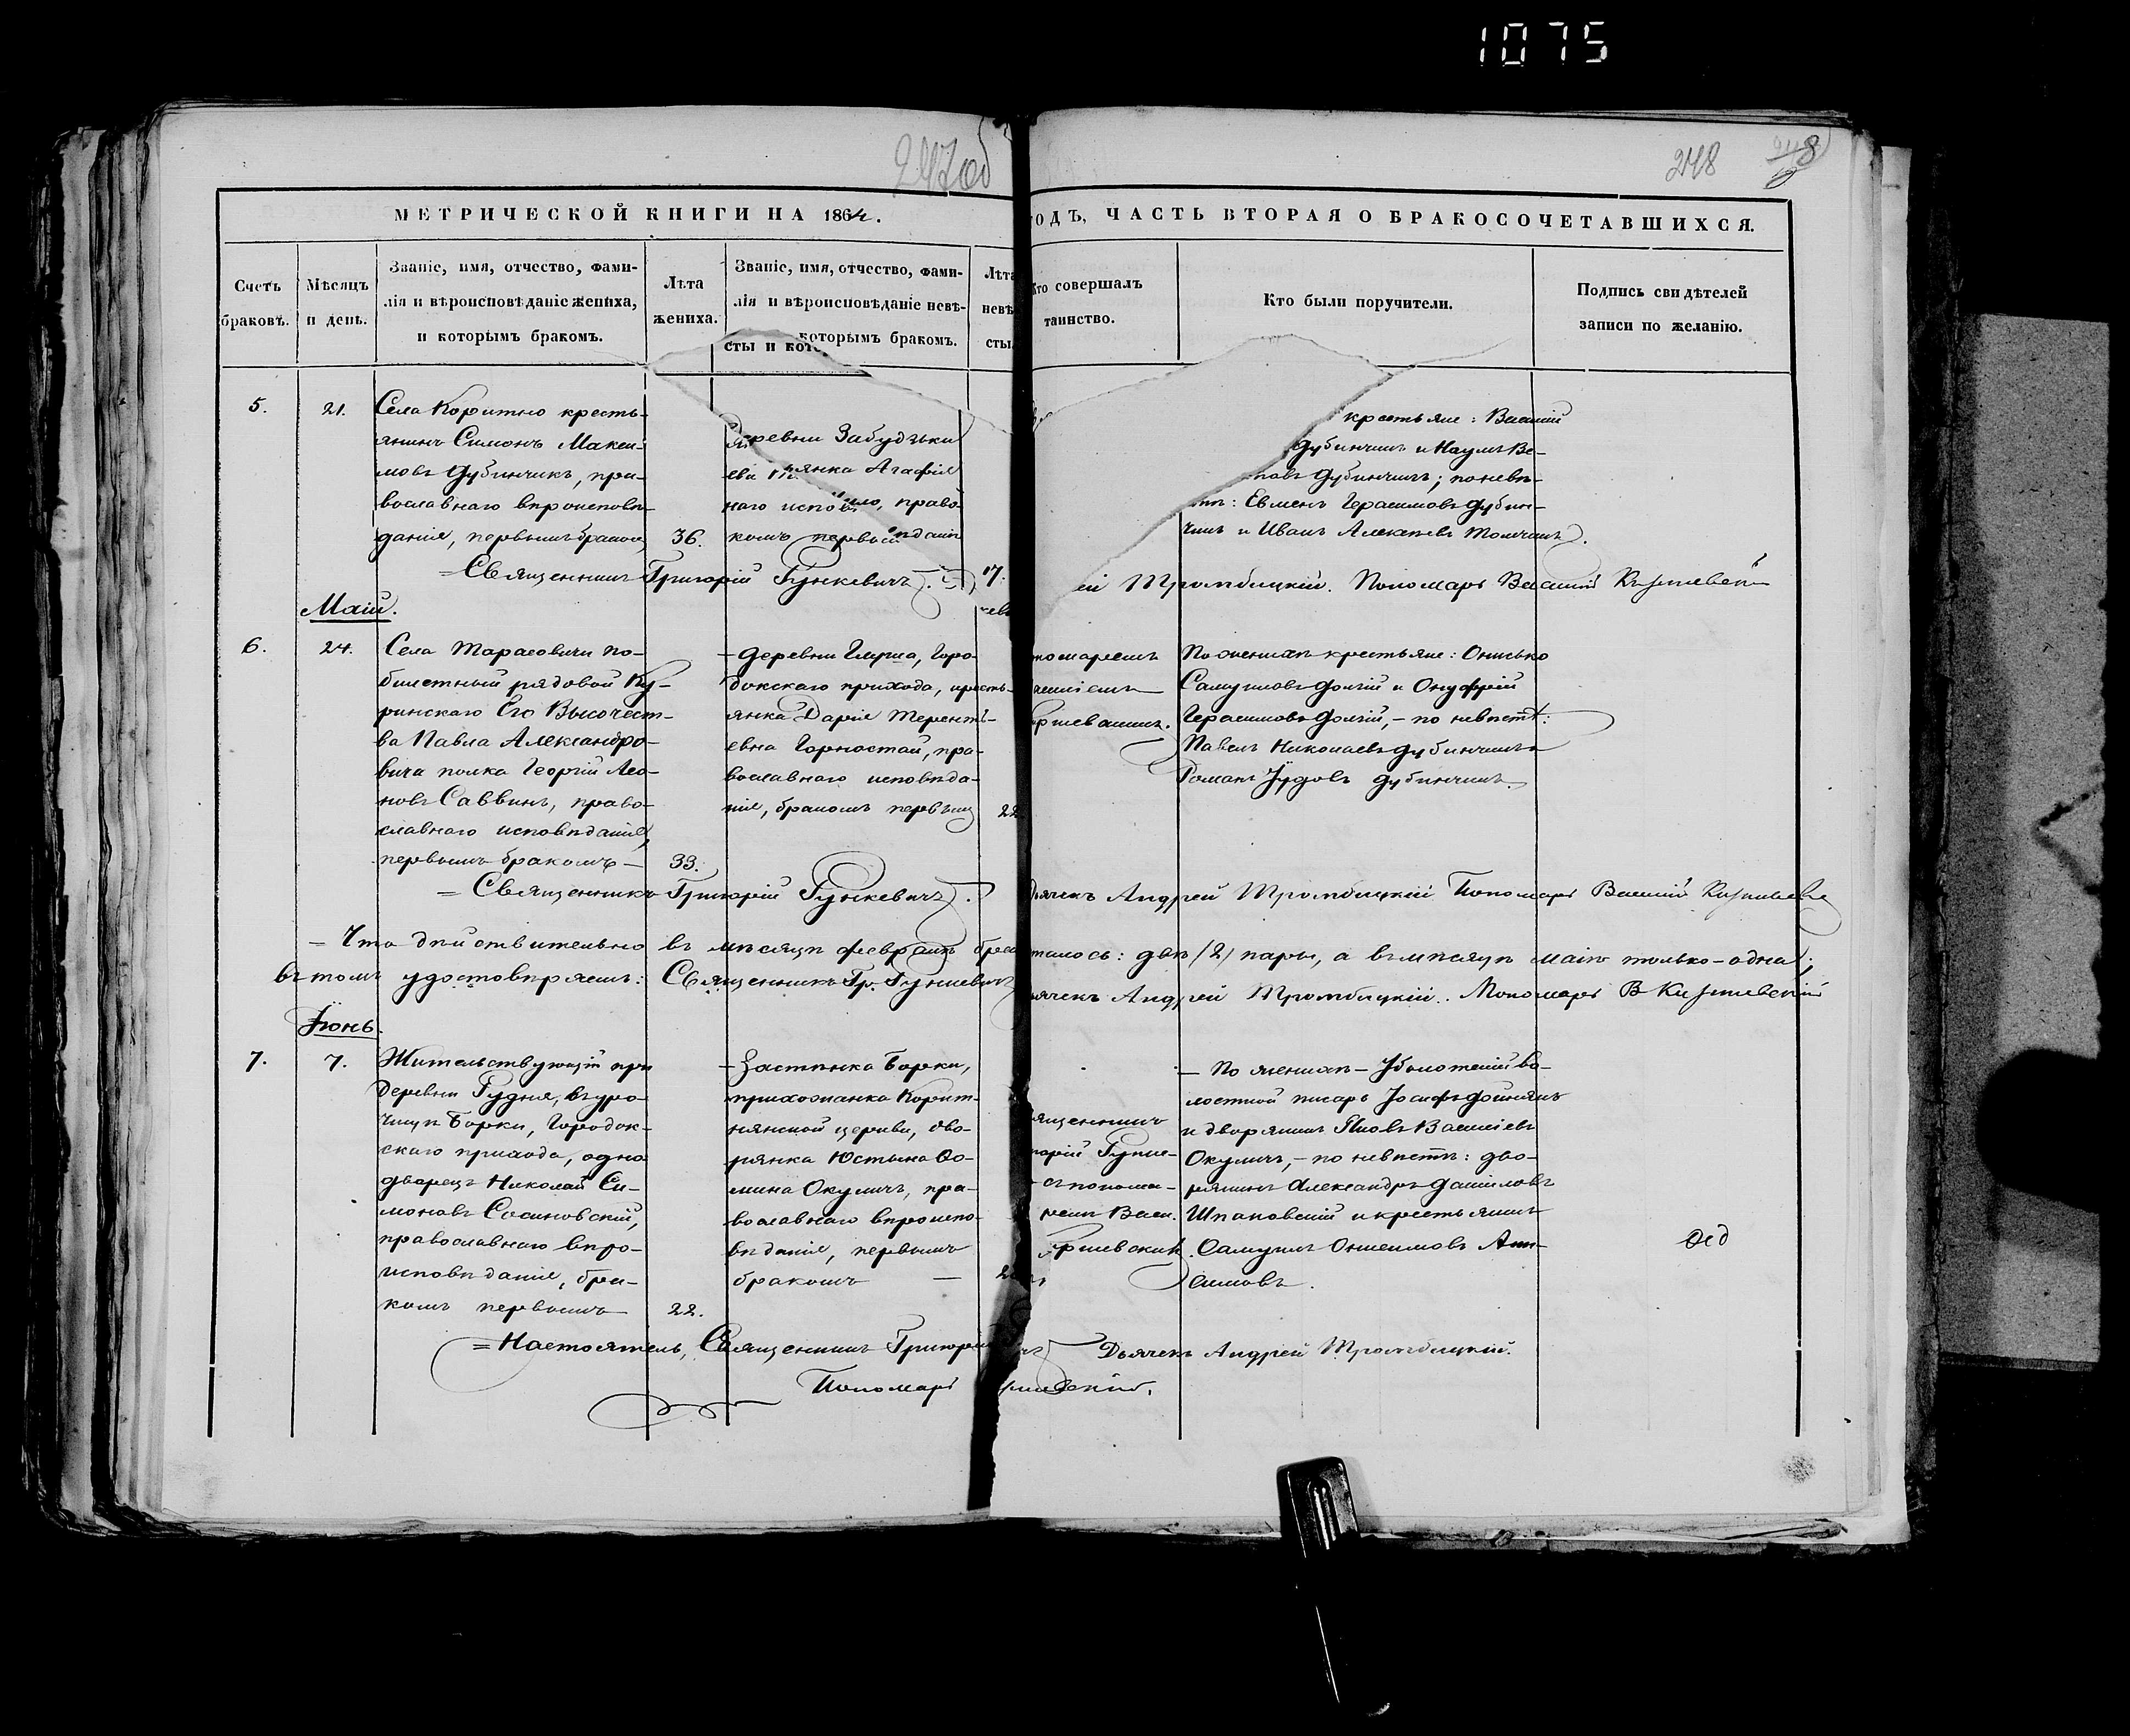 1075
247об
248
МЕТРИЧЕСКОЙ КНИГИ НА 1864.
ГОДЪ, ЧАСТЬ ВТОРАЯ О БРАКОСОЧЕТАВШИХСЯ.
Счетъ
браковъ.
Мѣсяцъ
и день.
Званіе, имя, отчество, фами-
лія и вѣроисповѣданіе жениха,
и которымъ бракомъ.
Лѣта
жениха.
Званіе, имя, отчество, фами-
лія и вѣроисповѣданіе невѣ-
сты и которымъ бракомъ.
Лѣта
невѣ
сты.
Кто совершалъ
таинство.
Кто были поручители.
Подпись свидѣтелей
записи по желанію.
5.
21.
Села Коритно кресть-
янинъ Симонъ Макси-
мовъ Дубинчикъ, пра-
вославнаго вѣроисповѣ-
данія, первымъ бракомъ
36.
деревни Забудзьки
янка Агафія
наго право-
комъ первым
17.
крестьяне: Василій
Дубинчикъ и Наумъ
Дубинчикъ; по невѣ-
стѣ: Евменъ Герасимовъ Дубин-
чикъ и Иванъ
=Священникъ Григорій Гункевичъ.
ей Тромбицкій. Пономарь Василій
Май.
6.
24.
Села Тарасовичи по-
билетный рядовой Ку-
ринскаго Его Высочест-
ва Павла Александро-
вича полка Георгій Лео-
новъ Саввинъ, право-
славнаго исповѣданія,
первымъ бракомъ —
33.
— деревни Глуша, Горо-
докскаго прихода, кресть-
янка Дарія Терентѣ-
евна Горностай, пра-
вославнаго исповѣда-
нія, бракомъ первым
22
номаремъ
По женихѣ крестьяне: Онисько
Самуиловъ Долгій и Онуфрій
Герасимовъ Долгій, — по невѣстѣ:
Павелъ Николаевъ Дубинчикъ и
Романъ Іудовъ Дубинчикъ.
=Священникъ Григорій Гункевичъ.
Дьячекъ Андрей Тромбицкій Пономарь Василій
= Что дѣйствительно въ мѣсяцѣ февралѣ брако
талось: двѣ /2/ пары, а въ мѣсяцѣ маіѣ только — одна;
въ томъ удостовѣряемъ: Священникъ Гр. Гункевичъ
Дьячекъ Андрей Тромбицкій. Пономарь В
Іюнь.
7.
7.
Жительствующій при
деревни Рудня, въ уро-
чищѣ Борки, Городок-
скаго прихода, одно
дворецъ Николай Си-
моновъ Сосиновскій,
православнаго вѣро-
исповѣданія, бра-
комъ первымъ
22.
— Застѣнка Борки,
прихожанка Корит-
нянской церкви, дво-
рянка Юстына Ѳо-
мина Окуличъ, пра-
вославнаго вѣроиспо-
вѣданія, первымъ
бракомъ —
ященникъ
горій Гунке-
съ понома-
ремъ Васи.
— По женихѣ — Уболотскій во-
лостной писарь Іосифъ
и дворянинъ Яковъ Василіевъ
Окуличъ, — по невѣстѣ: дво-
рянинъ Александръ Даниловъ
Шпаковскій и крестьянинъ
Самуилъ Онисимовъ Ани-
симовъ.
=Настоятель, Священникъ Григорій
Дьячекъ Андрей Тромбицкій.
Пономарь